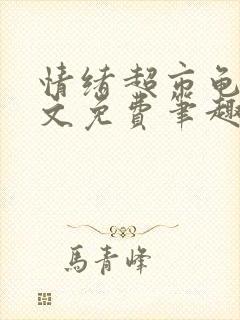 情绪超市龟
文免费笔趣
馬青峰